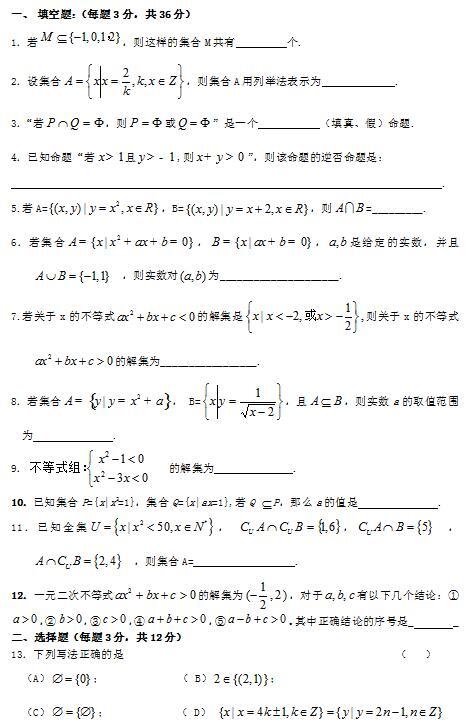 一、 填空题:（每题 3 分，共 36 分）
1. 若 M ⊆ {-1,0,1,2}，则这样的集合 M 共有________个.
2. 设集合 A = {x | x = 2/k, k, x ∈ Z}，则集合 A 用列举法表示为____________.
3. “若 P ∩ Q = Φ，则 P = Φ 或 Q = Φ ” 是一个__________（填真、假）命题.
4. 已知命题“若 x> 1 且 y> - 1，则 x+ y > 0 ”，则该命题的逆否命题是：
______________________________________________.
5.若 A={(x, y) | y = x², x ∈ R}，B={(x, y) | y = x + 2, x ∈ R}，则 A∩B=________.
6. 若集合 A = {x | x² + ax + b = 0}， B = {x | ax + b = 0}， a, b 是给定的实数，并且
A ∪ B = {-1,1} ，则实数对 (a, b) 为____________________.
7.若关于 x 的不等式 ax² + bx + c < 0 的解集是 {x | x < -2, 或x > -1/2},则关于 x 的不等式
ax² + bx + c > 0 的解集为________________.
8. 若集合 A = {y | y = x² + a}， B= {x | y = 1/√(x-2)}，且 A ⊆ B，则实数 a 的取值范围
为_____________.
9. 不等式组：{x² -1 < 0 x² - 3x < 0 的解集为_____________.
10. 已知集合 P={x| x²=1}，集合 Q={x| ax=1},若 Q ⊆ P，那么 a 的值是_____________.
11. 已知全集 U = {x | x² < 50, x ∈ N*}， C_U A ∩ C_U B = {1,6}， C_U A ∩ B = {5} ，
A ∩ C_U B = {2,4} ，则集合 A=________________.
12. 一元二次不等式 ax² + bx + c > 0 的解集为 (-1/2, 2)，对于 a, b, c 有以下几个结论：①
a > 0,② b > 0,③ c > 0,④ a + b + c > 0,⑤ a - b + c > 0 .其中正确结论的序号是_ ______
二、选择题（每题 3 分，共 12 分）
13. 下列写法正确的是 （ ）
（A）∅ = {0}； （ B）2 ∈ {(2,1)}；
（C）∅ = {∅}； （ D） {x | x = 4k ± 1, k ∈ Z} = {y | y = 2n - 1, n ∈ Z}